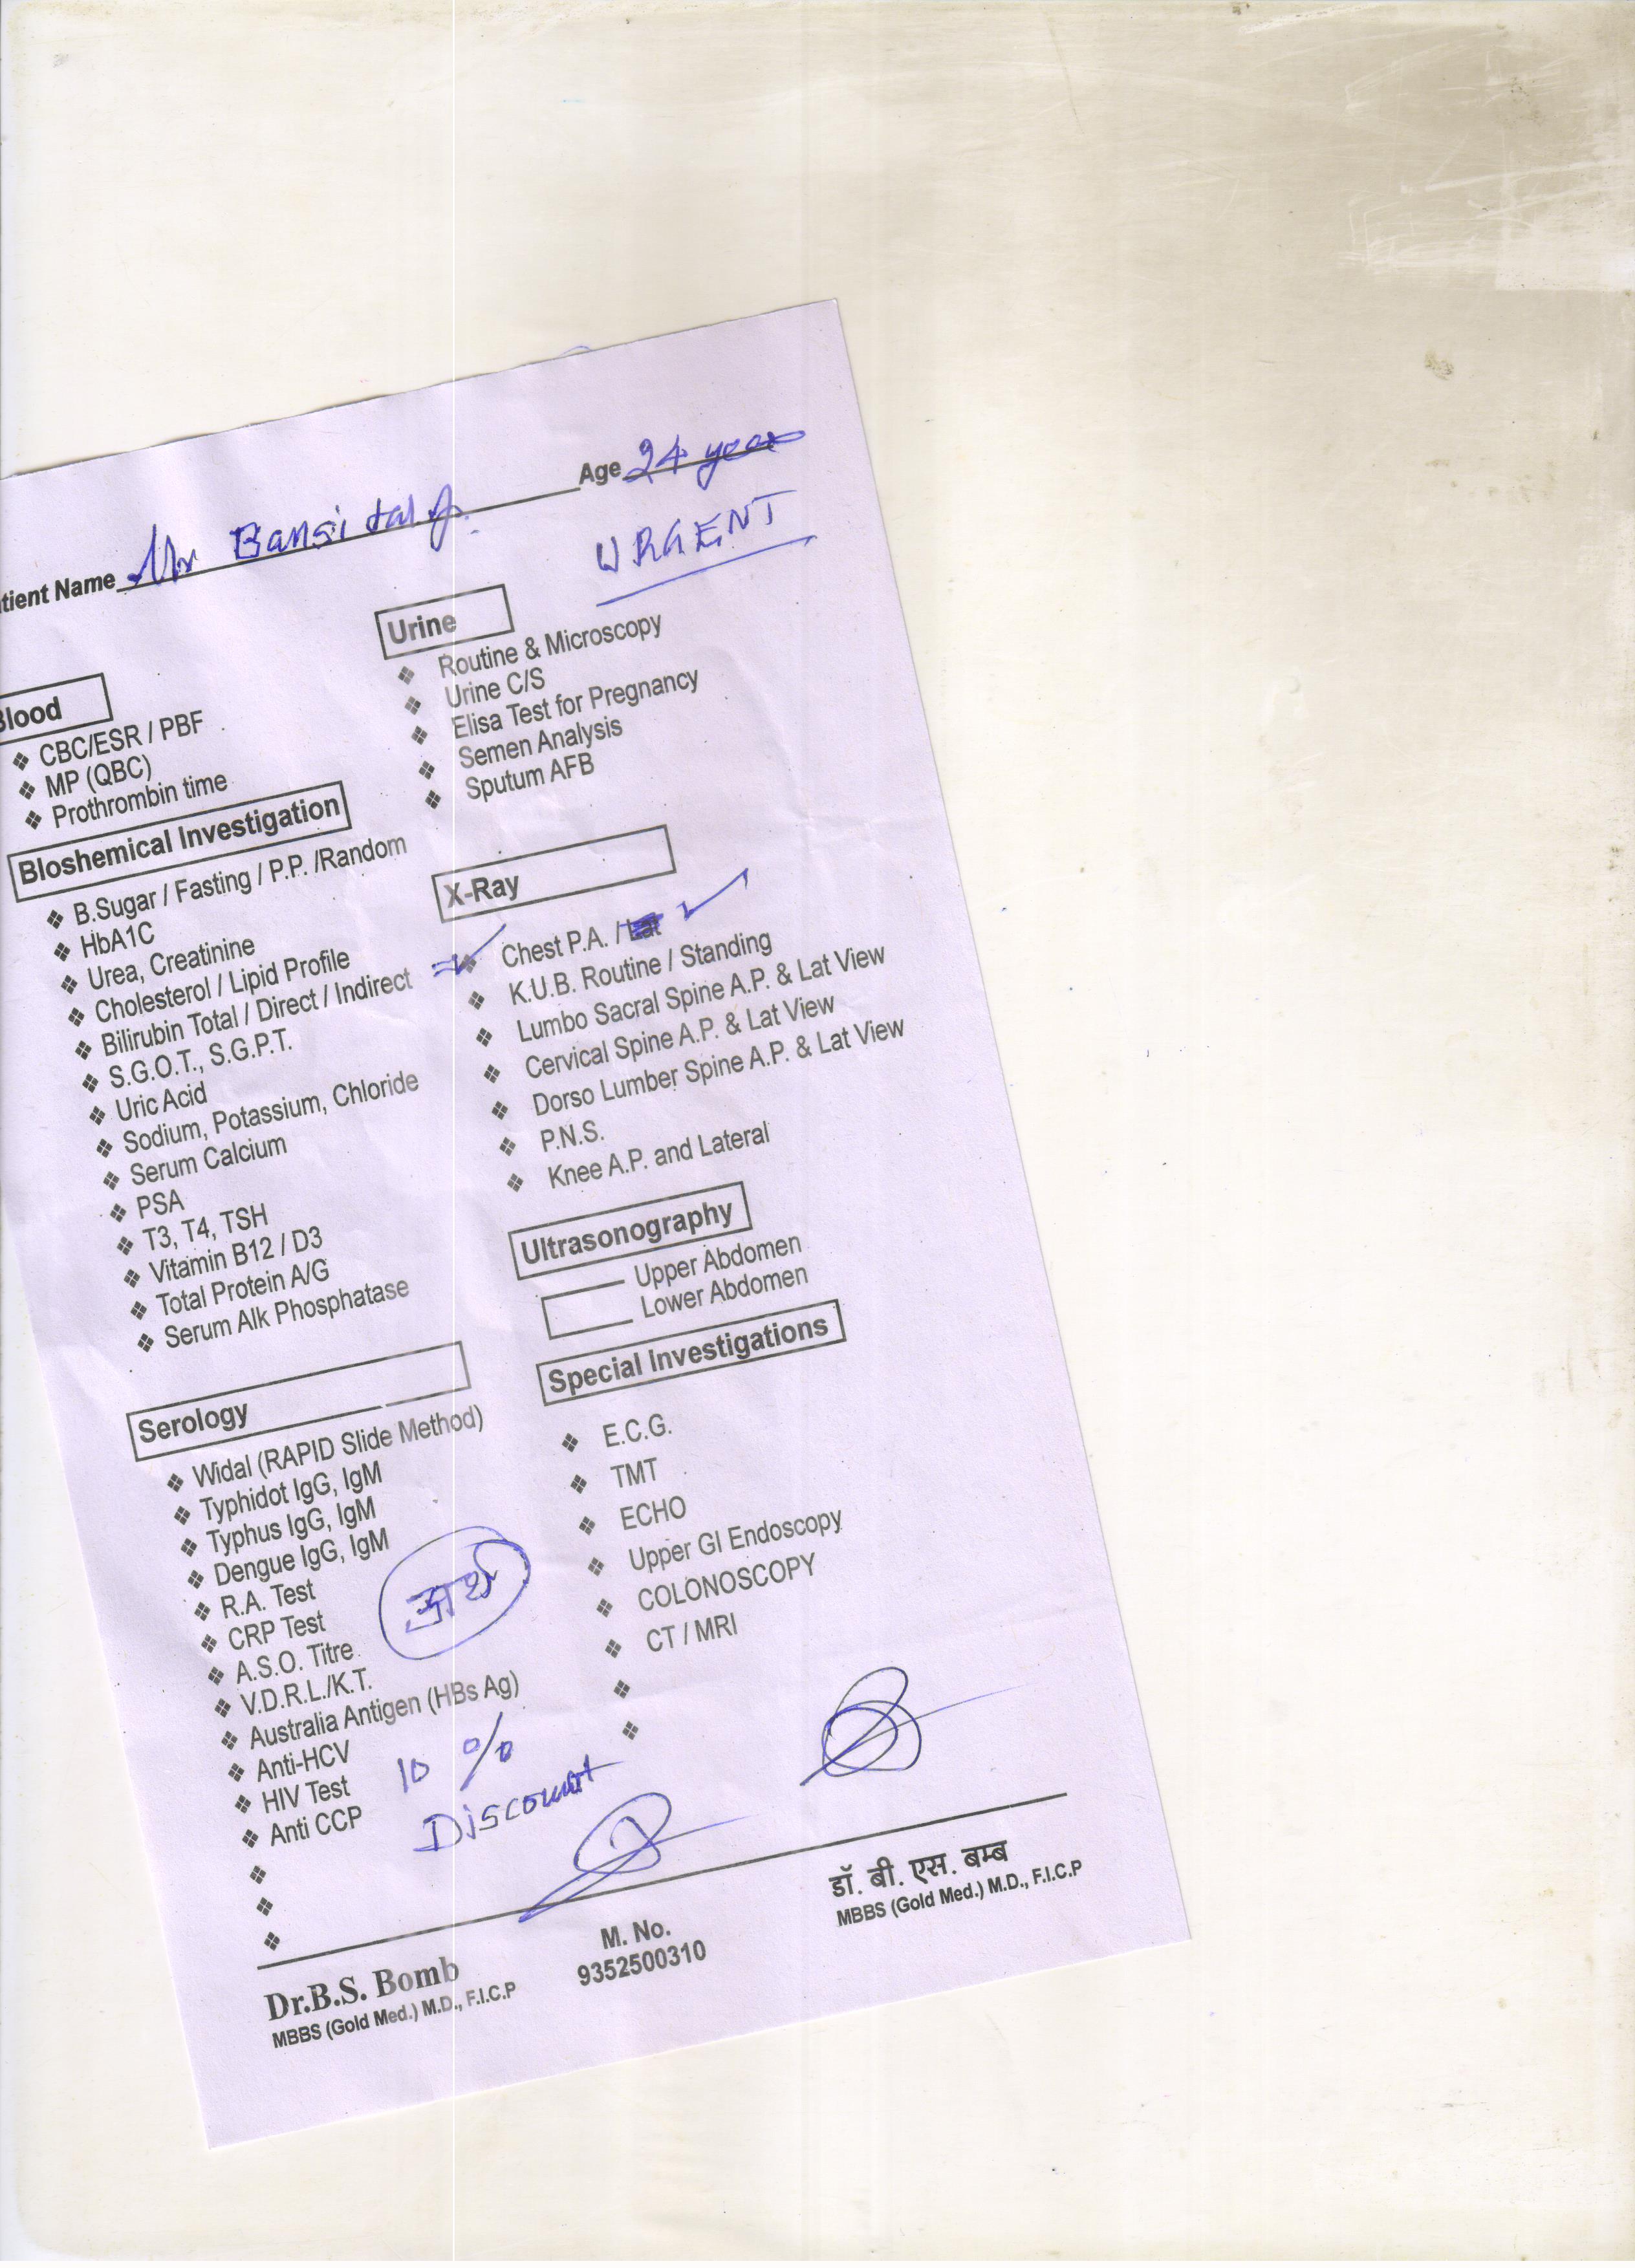 tient Name Mr Bansi Lal Ji Age 24 year
URGENT
Blood
❖ CBC/ESR / PBF
❖ MP (QBC)
❖ Prothrombin time
Bloshemical Investigation
❖ B.Sugar / Fasting / P.P. /Random
❖ HbA1C
❖ Urea, Creatinine
❖ Cholesterol / Lipid Profile
❖ Bilirubin Total / Direct / Indirect
❖ S.G.O.T., S.G.P.T.
❖ Uric Acid
❖ Sodium, Potassium, Chloride
❖ Serum Calcium
❖ PSA
❖ T3, T4, TSH
❖ Vitamin B12 / D3
❖ Total Protein A/G
❖ Serum Alk Phosphatase
Serology
❖ Widal (RAPID Slide Method)
❖ Typhidot IgG, IgM
❖ Typhus IgG, IgM
❖ Dengue IgG, IgM
❖ R.A. Test
❖ CRP Test
❖ A.S.O. Titre
❖ V.D.R.L./K.T.
❖ Australia Antigen (HBs Ag)
❖ Anti-HCV
❖ HIV Test
❖ Anti CCP
10 %
Discount
Urine
❖ Routine & Microscopy
❖ Urine C/S
❖ Elisa Test for Pregnancy
❖ Semen Analysis
❖ Sputum AFB
X-Ray
❖ Chest P.A. / Lat ✓
❖ K.U.B. Routine / Standing
❖ Lumbo Sacral Spine A.P. & Lat View
❖ Cervical Spine A.P. & Lat View
❖ Dorso Lumber Spine A.P. & Lat View
❖ P.N.S.
❖ Knee A.P. and Lateral
Ultrasonography
Upper Abdomen
Lower Abdomen
Special Investigations
❖ E.C.G.
❖ TMT
❖ ECHO
❖ Upper GI Endoscopy
❖ COLONOSCOPY
❖ CT / MRI
Dr.B.S. Bomb
MBBS (Gold Med.) M.D., F.I.C.P
M. No.
9352500310
डॉ. बी. एस. बम्ब
MBBS (Gold Med.) M.D., F.I.C.P